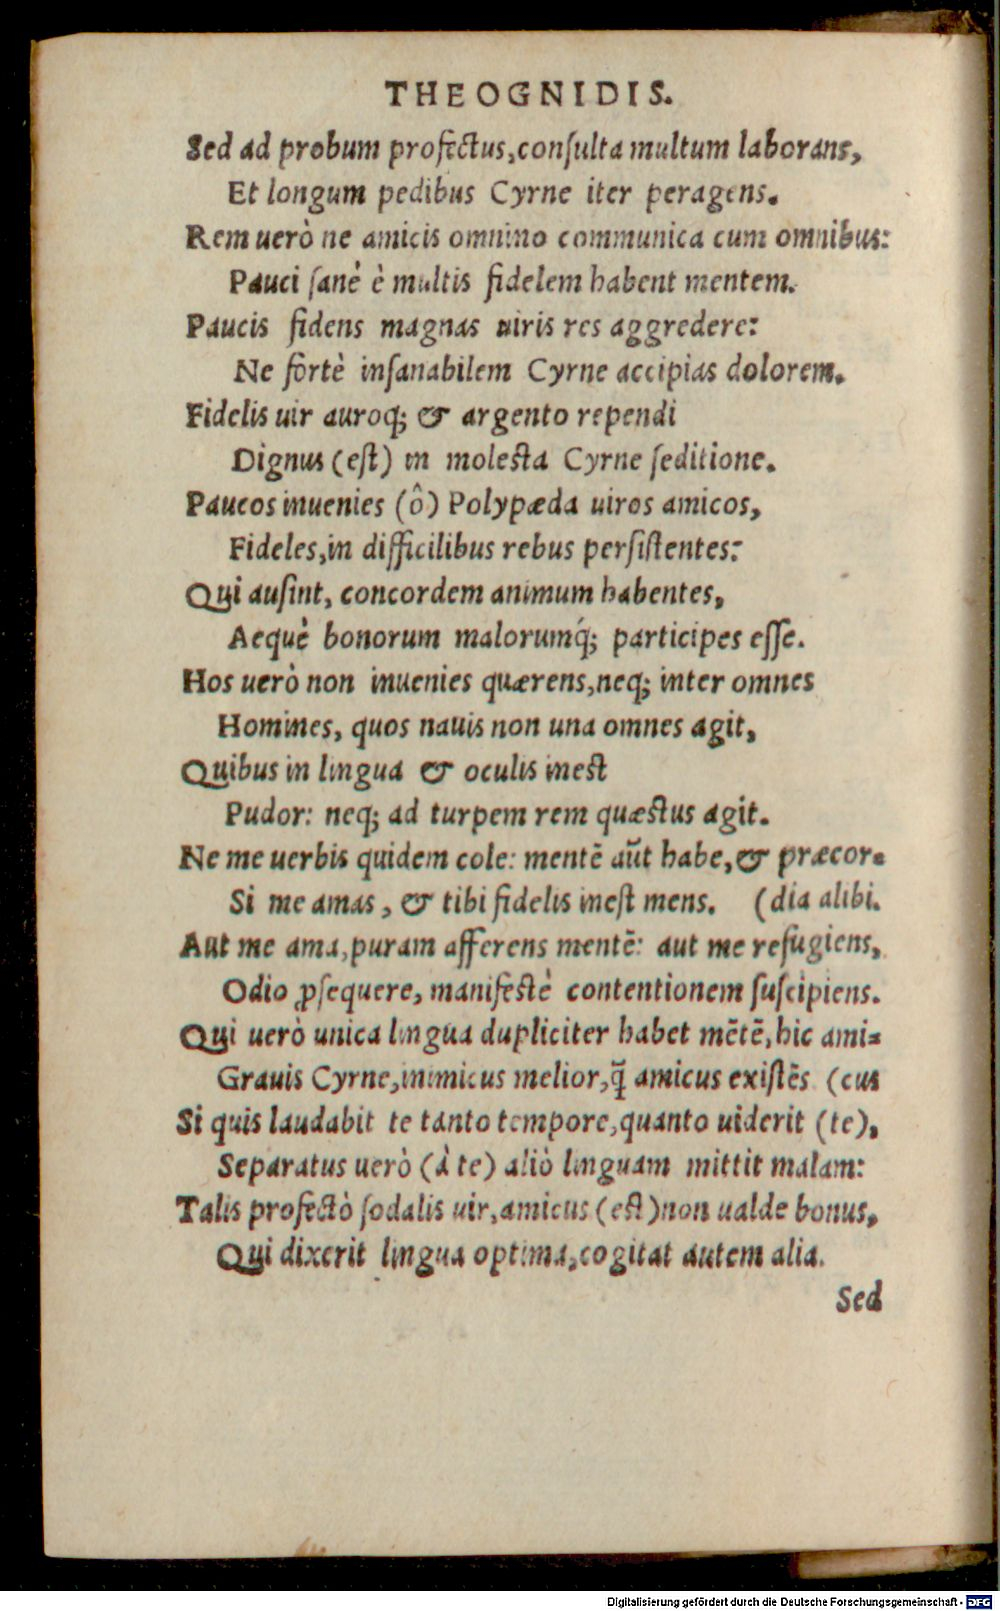 THEOGNIDIS.
Sed ad probum profectus, consulta multum laborans,
Et longum pedibus Cyrne iter peragens.
Rem uerò ne amicis omnino communica cum omnibus:
Pauci sanè è multis fidelem habent mentem.
Paucis fidens magnas uiris res aggredere:
Ne fortè insanabilem Cyrne accipias dolorem.
Fidelis uir auroq; & argento rependi
Dignus (est) in molesta Cyrne seditione.
Paucos inuenies (ô) Polypæda uiros amicos,
Fideles, in difficilibus rebus persistentes:
Qui ausint, concordem animum habentes,
Aequè bonorum malorumq́; participes esse.
Hos uerò non inuenies quærens, neq; inter omnes
Homines, quos nauis non una omnes agit,
Quibus in lingua & oculis inest
Pudor: neq; ad turpem rem quæstus agit.
Ne me uerbis quidem cole: mentē aūt habe, & præcor-
Si me amas, & tibi fidelis inest mens. (dia alibi.
Aut me ama, puram afferens mentē: aut me refugiens,
Odio ꝓsequere, manifestè contentionem suscipiens.
Qui uerò unica lingua dupliciter habet mētē, hic ami-
Grauis Cyrne, inimicus melior, q̃ amicus existēs (cus
Si quis laudabit te tanto tempore, quanto uiderit (te),
Separatus uerò (à te) aliò linguam mittit malam:
Talis profectò sodalis uir, amicus (est) non ualde bonus,
Qui dixerit lingua optima, cogitat autem alia.
Sed
Digitalisierung gefördert durch die Deutsche Forschungsgemeinschaft - DFG